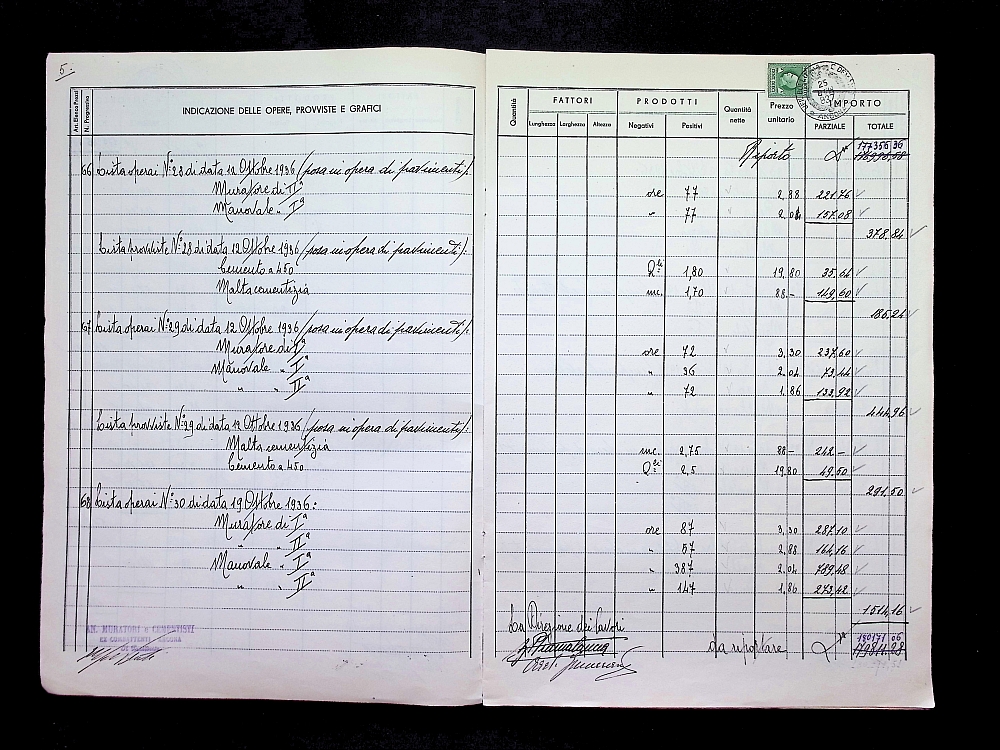 5.
Art. Elenco Prezzi
N. Progressivo
INDICAZIONE DELLE OPERE, PROVVISTE E GRAFICI
66 Lista operai N.º 28 di data 12 Ottobre 1936 (posa in opera di pavimenti):
Muratore di IIª
Manovale " Iª
Lista provviste N.º 28 di data 12 Ottobre 1936 (posa in opera di pavimenti):
Cemento a 450
Malta cementizia
67 Lista operai N.º 29 di data 12 Ottobre 1936 (posa in opera di pavimenti):
Muratore di Iª
Manovale " Iª
" " IIª
Lista provviste N.º 29 di data 12 Ottobre 1936 (posa in opera di pavimenti):
Malta cementizia
Cemento a 450
68 Lista operai N.º 30 di data 19 Ottobre 1936:
Muratore di Iª
" " IIª
Manovale " Iª
" " IIª
AN. MURATORI e CEMENTISTI
EX COMBATTENTI ANCONA
Quantità
FATTORI
PRODOTTI
Quantità nette
Prezzo unitario
IMPORTO
Lunghezza Larghezza Altezza Negativi Positivi PARZIALE TOTALE
177356,36
Riporto
ore 77 2,88 221,76
" 77 2,04 157,08
378,84
Q.li 1,80 19,80 35,64
mc. 1,70 88.- 149,60
185,24
ore 72 3,30 237,60
" 36 2,04 73,44
" 72 1,86 133,92
444,96
mc. 2,75 88.- 242.-
Q.li 2,5 19,80 49,50
291,50
ore 87 3,30 287,10
" 57 2,88 164,16
" 387 2,04 789,48
" 147 1,86 273,42
1514,16
La Direzione dei lavori
180171,06
da riportare